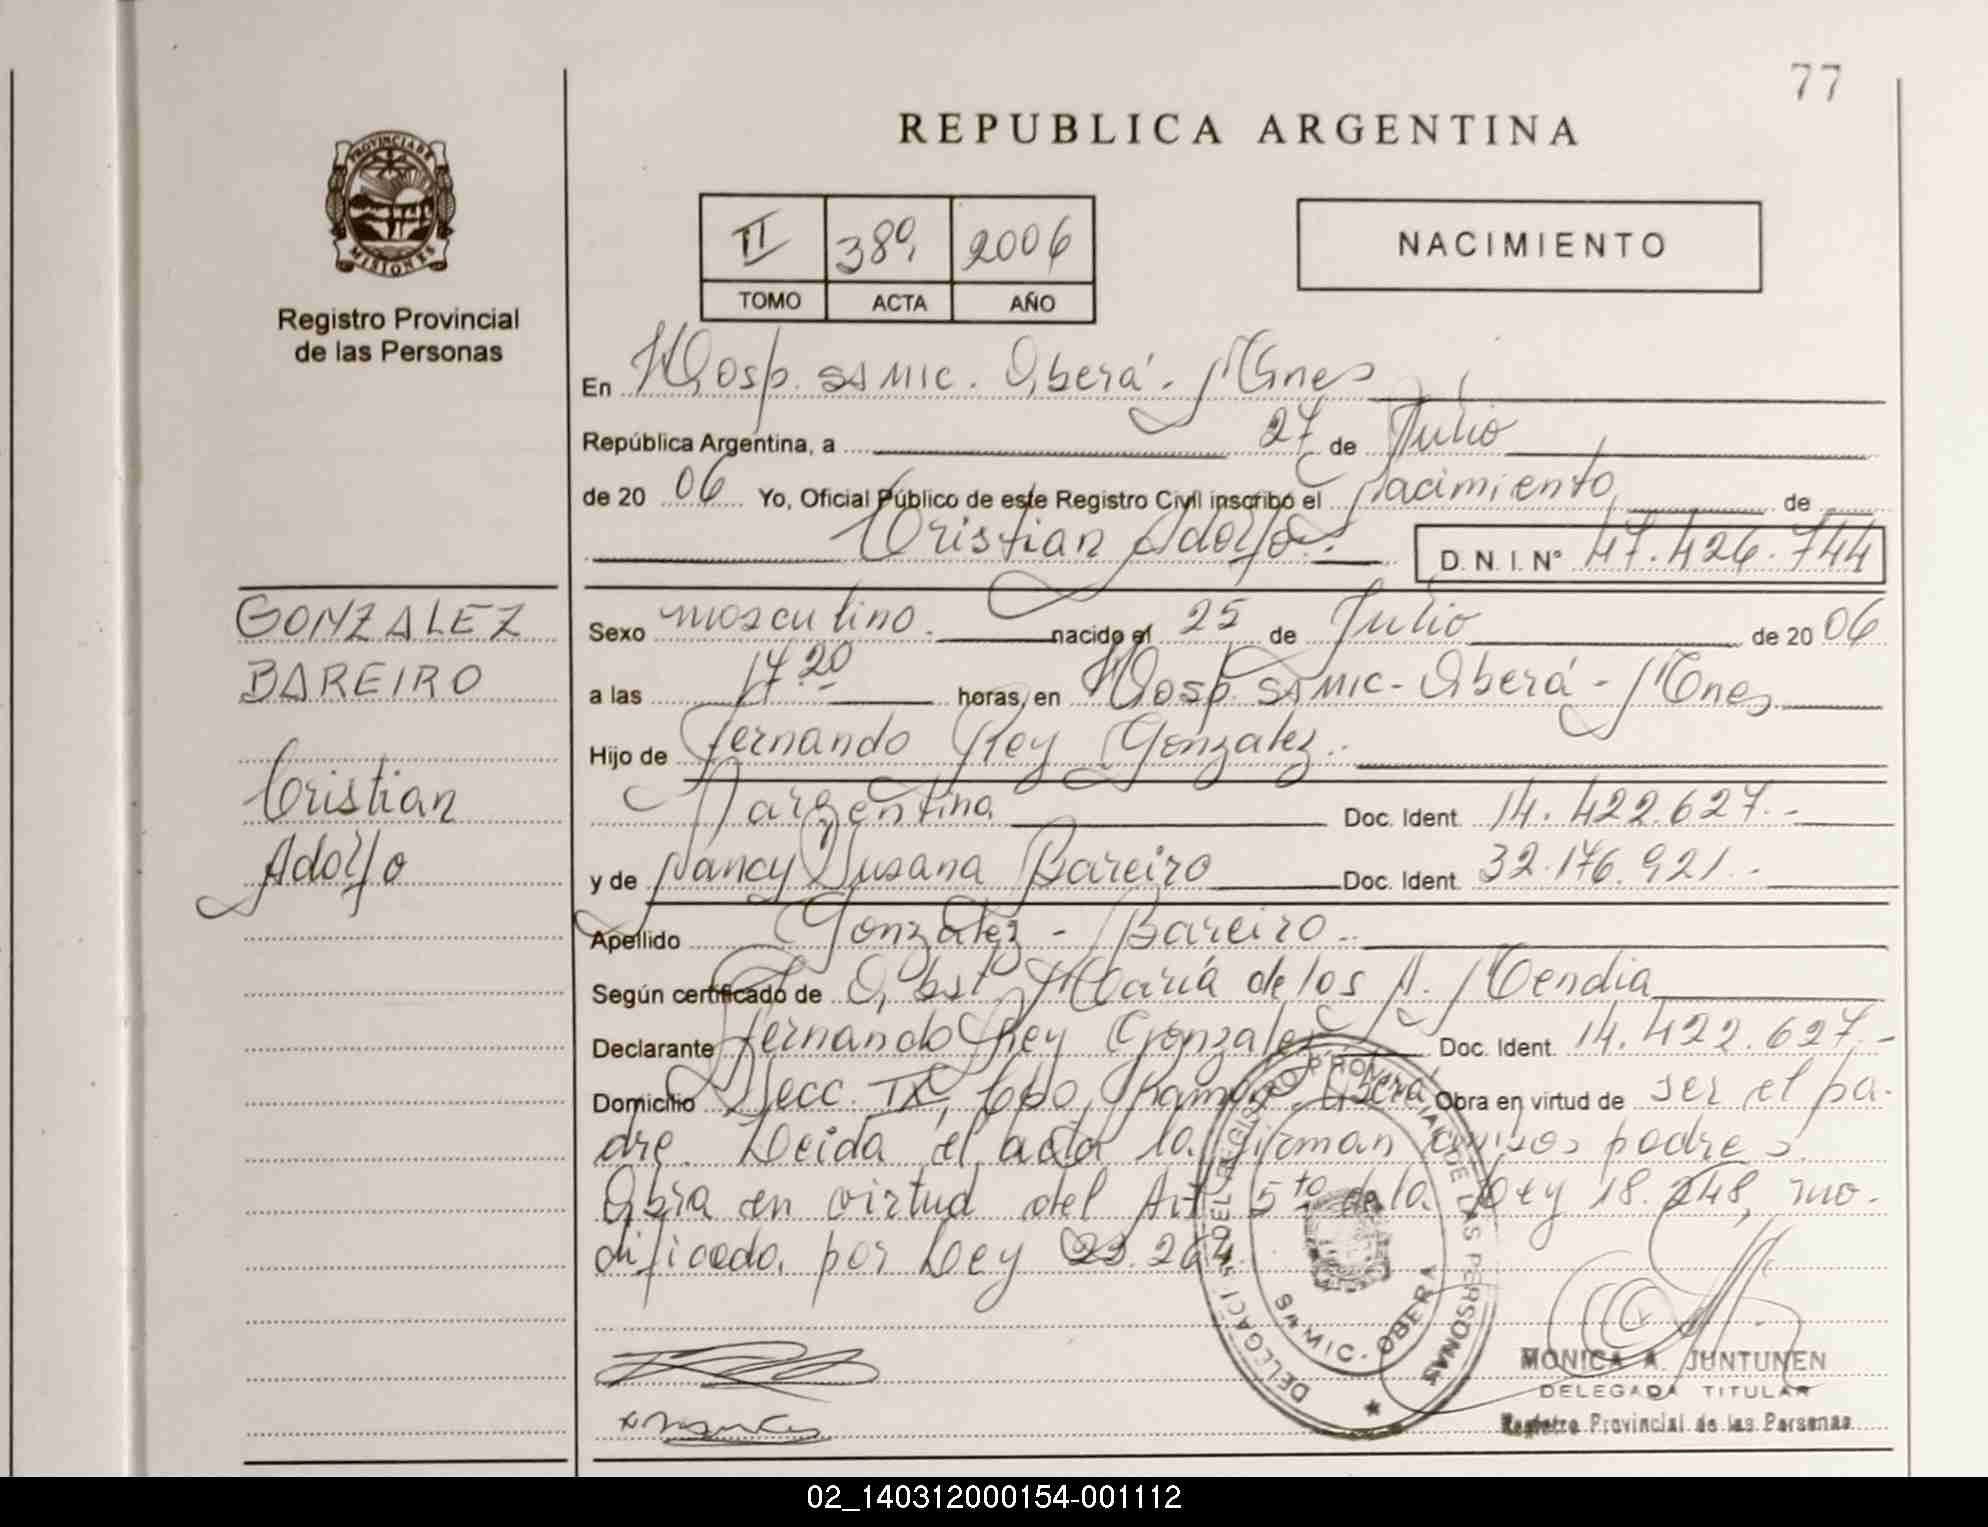 77
REPUBLICA ARGENTINA
PROVINCIA DE
MISIONES
Registro Provincial
de las Personas
II 389 2006
TOMO ACTA AÑO
NACIMIENTO
En Hosp. SAMIC. Oberá. Mnes
República Argentina, a 27 de Julio
de 20 06 Yo, Oficial Público de este Registro Civil inscribo el Nacimiento de
Cristian Adolfo.. D.N.I.N° 47.426.744
GONZALEZ
BAREIRO
Cristian
Adolfo
Sexo masculino. nacido el 25 de Julio de 20 06
a las 17.20 horas, en Hosp. SAMIC - Oberá - Mnes
Hijo de Fernando Rey Gonzalez..
argentina Doc. Ident. 14.422.627.-
y de Nancy Susana Bareiro Doc. Ident. 32.176.921.-
Apellido Gonzalez - Bareiro..
Según certificado de Obst. María de los A. Mendia
Declarante Fernando Rey Gonzalez Doc. Ident. 14.422.627.-
Domicilio Secc. IX, Oberá Obra en virtud de ser el pa-
dre. Leida el acta la firman ambos padres.
Obra en virtud del Art 5to de la Ley 18.248, mo-
dificada por Ley 23.264.
DELEGACION DEL REGISTRO PROVINCIAL DE LAS PERSONAS
SAMIC - OBERA
MONICA A. JUNTUNEN
DELEGADA TITULAR
Registro Provincial de las Personas
02_140312000154-001112